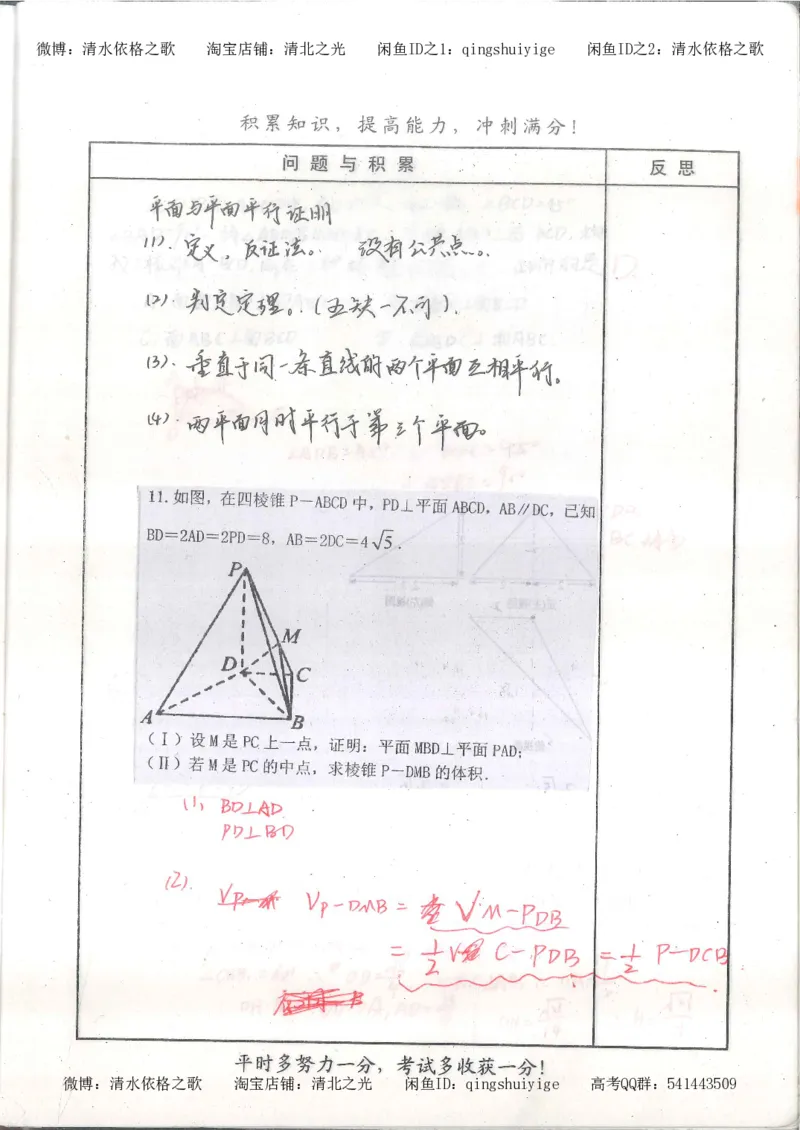 微博：清水依格之歌 淘宝店铺：清北之光 闲鱼ID之1：qingshuiyige 闲鱼ID之2：清水依格之歌
积累知识，提高能力，冲刺满分！
问题与积累 反思
平面与平面平行证明
(1). 定义，反证法。 没有公共点。
(2). 判定定理。(五缺一不可).
(3). 垂直于同一条直线的两个平面互相平行。
(4). 两平面同时平行于第三个平面。
11. 如图，在四棱锥 P－ABCD 中，PD⊥平面 ABCD，AB∥DC，已知
BD＝2AD＝2PD＝8，AB＝2DC＝4√5．
P
M
D
C
A
B
(Ⅰ) 设 M 是 PC 上一点，证明：平面 MBD⊥平面 PAD；
(Ⅱ) 若 M 是 PC 的中点，求棱锥 P－DMB 的体积．
(1) BD⊥AD
PD⊥BD
(2). V P-DMB = V M-PDB
= 1/2 V C-PDB = 1/2 P-DCB
平时多努力一分，考试多收获一分！
微博：清水依格之歌 淘宝店铺：清北之光 闲鱼ID：qingshuiyige 高考QQ群：541443509